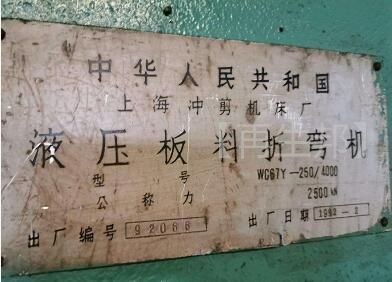 中华人民共和国
上海冲剪机床厂
液压板料折弯机
型号 WC67Y-250/4000
公称力 2500 kN
出厂编号 92066 出厂日期 1992-2